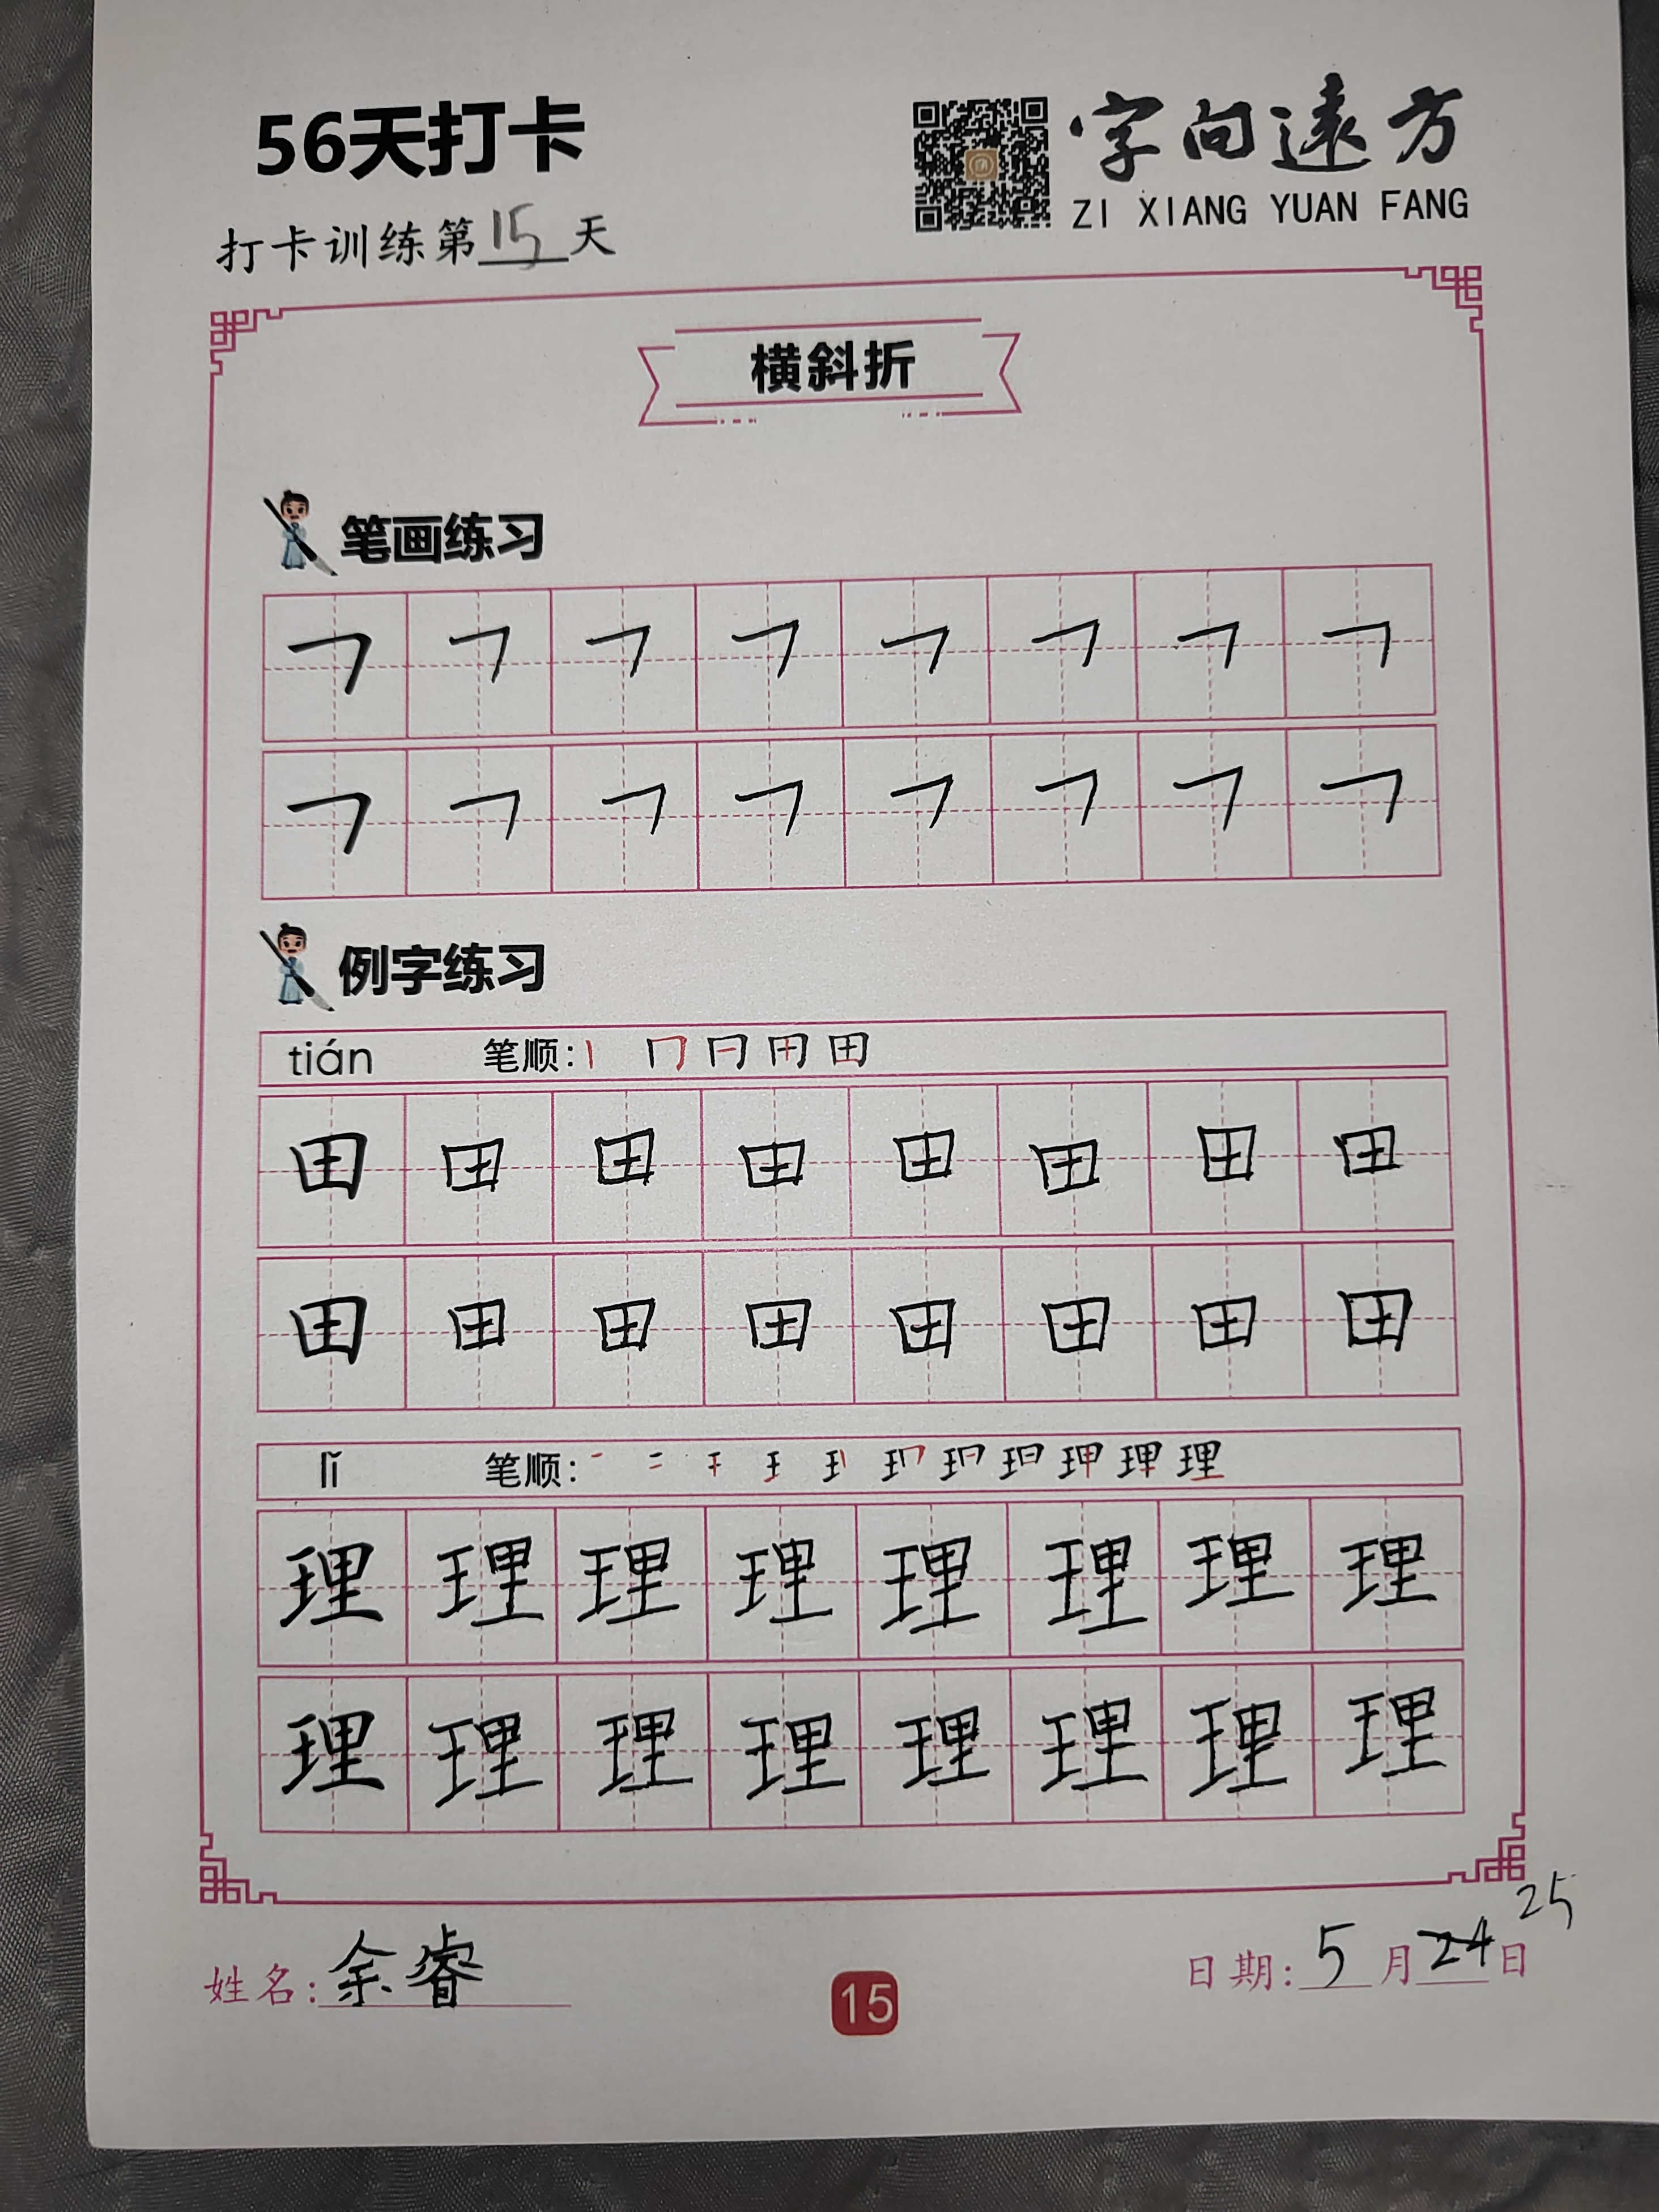 56天打卡
字向遠方
ZI XIANG YUAN FANG
打卡训练第15天
横斜折
笔画练习
㇕ ㇕ ㇕ ㇕ ㇕ ㇕ ㇕ ㇕
㇕ ㇕ ㇕ ㇕ ㇕ ㇕ ㇕ ㇕
例字练习
tián 笔顺: 丨 冂 日 田 田
田 田 田 田 田 田 田 田
田 田 田 田 田 田 田 田
lǐ 笔顺: 理
理 理 理 理 理 理 理 理
理 理 理 理 理 理 理 理
姓名: 余睿
15
日期: 5月24日 25